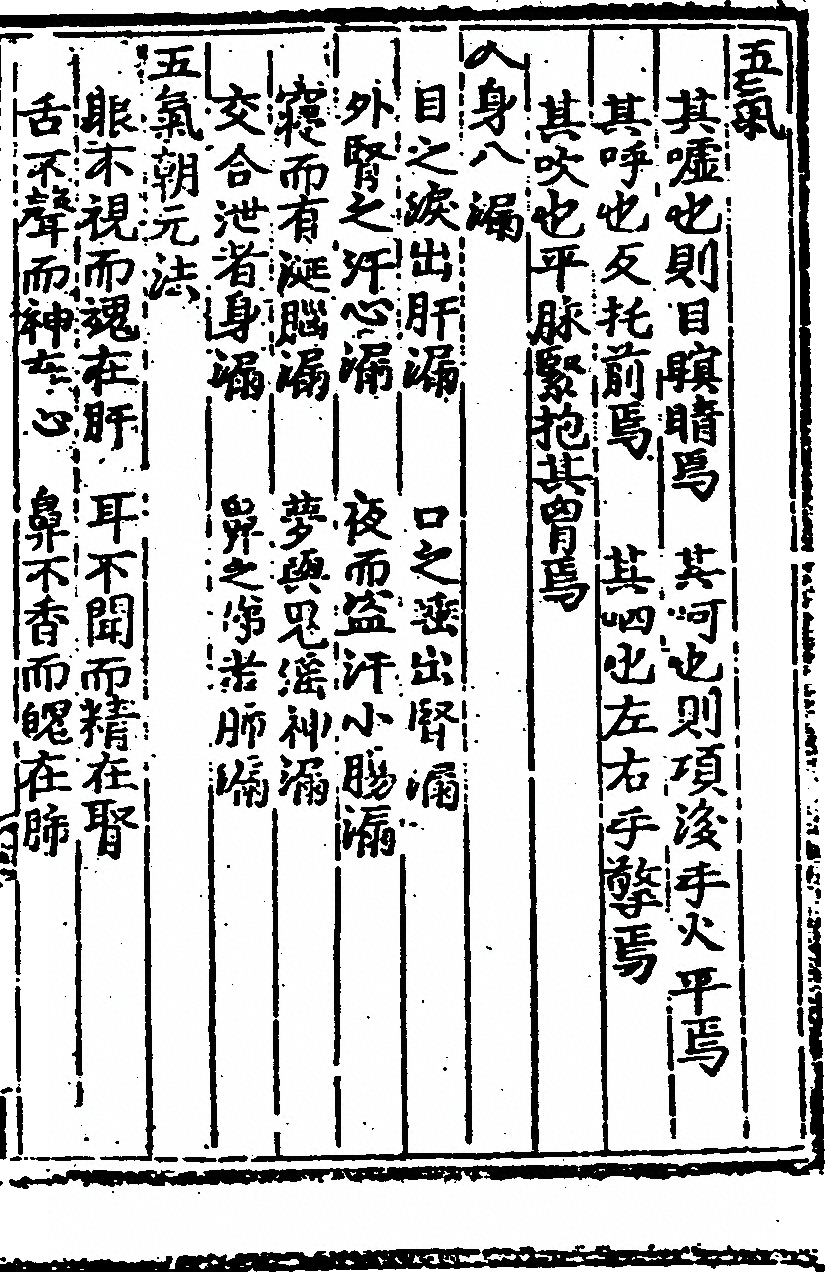 五氣
其噓也則目瞑睛焉　其呵也則項後手火平焉
其呼也反托前焉　其呬也左右手擎焉
其吹也平脉緊抱其胃焉
人身八漏
目之淚出肝漏　口之唾出腎漏
外腎之汗心漏　夜而盗汗小腸漏
寢而有涎腦漏　夢與鬼 神漏
交合泄者身漏　鼻之涕者肺漏
五氣朝元法
眼不視而魂在肝　耳不聞而精在腎
舌不聲而神在心　鼻不香而魄在肺